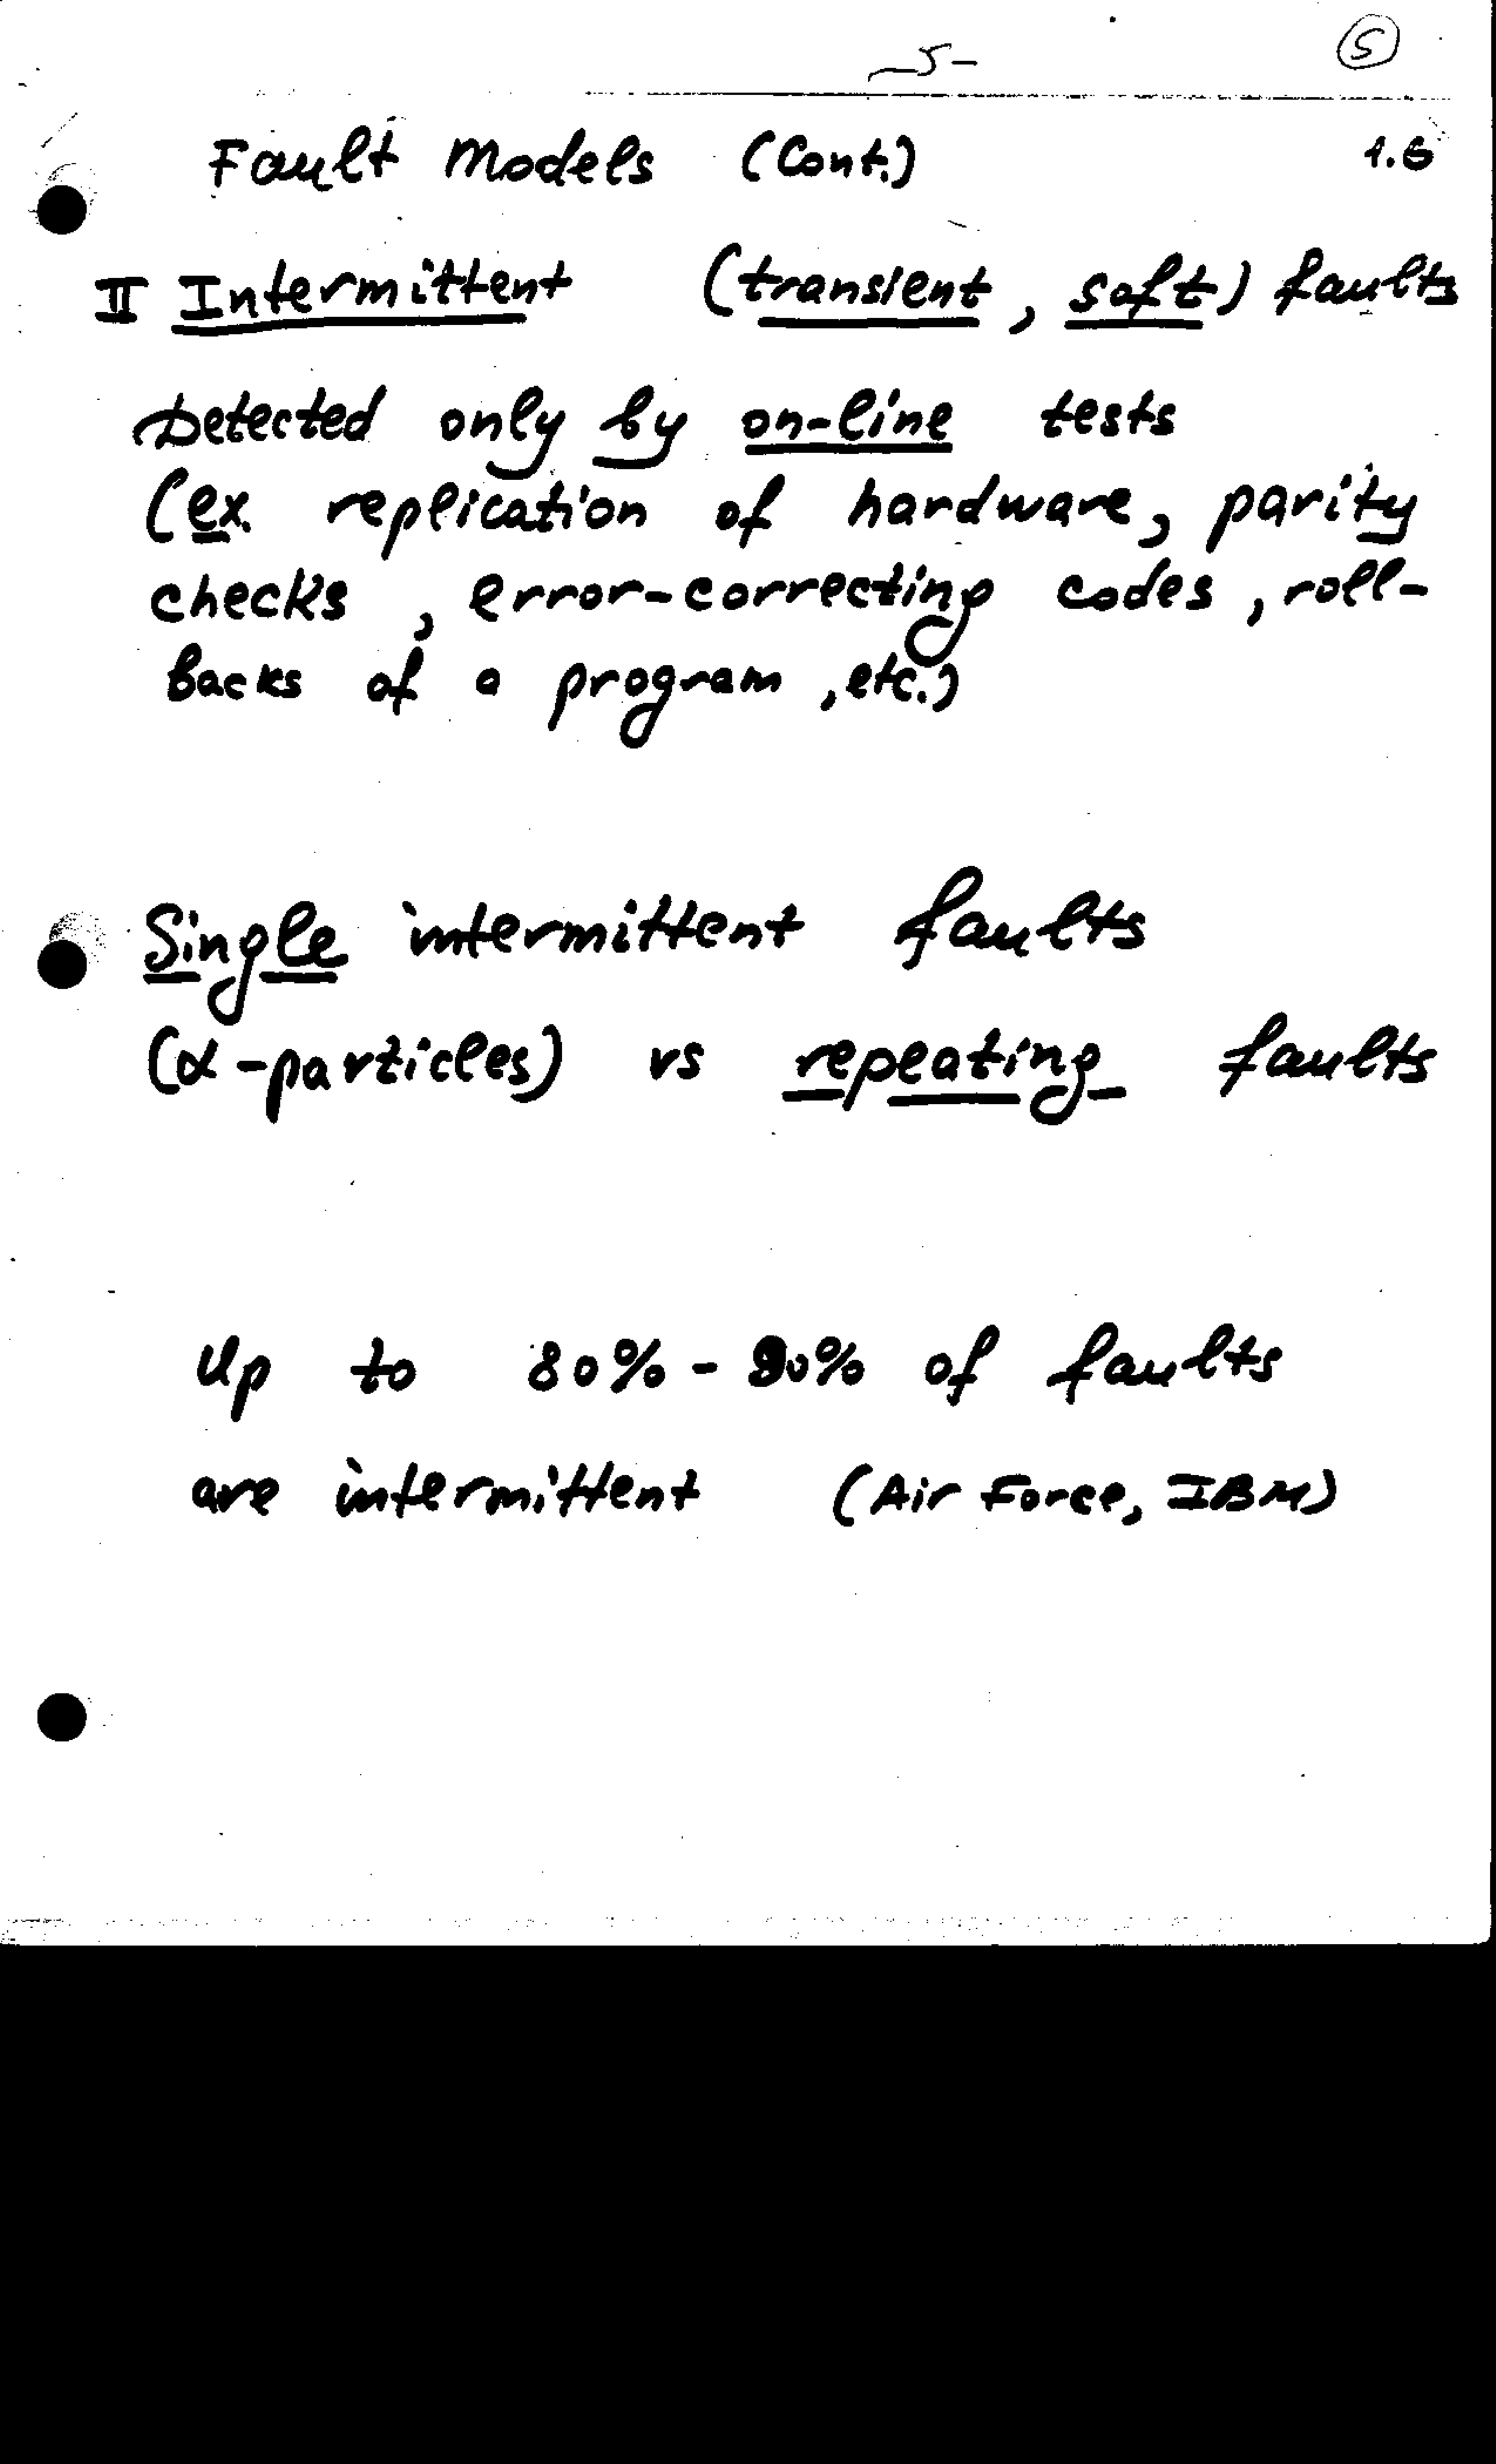 -5-
5
Fault Models (Cont.) 1.6
II Intermittent (transient, soft) faults
Detected only by on-line tests
(ex. replication of hardware, parity
checks, error-correcting codes, roll-
backs of a program, etc.)
Single intermittent faults
(α-particles) vs repeating faults
Up to 80% - 90% of faults
are intermittent (Air Force, IBM)